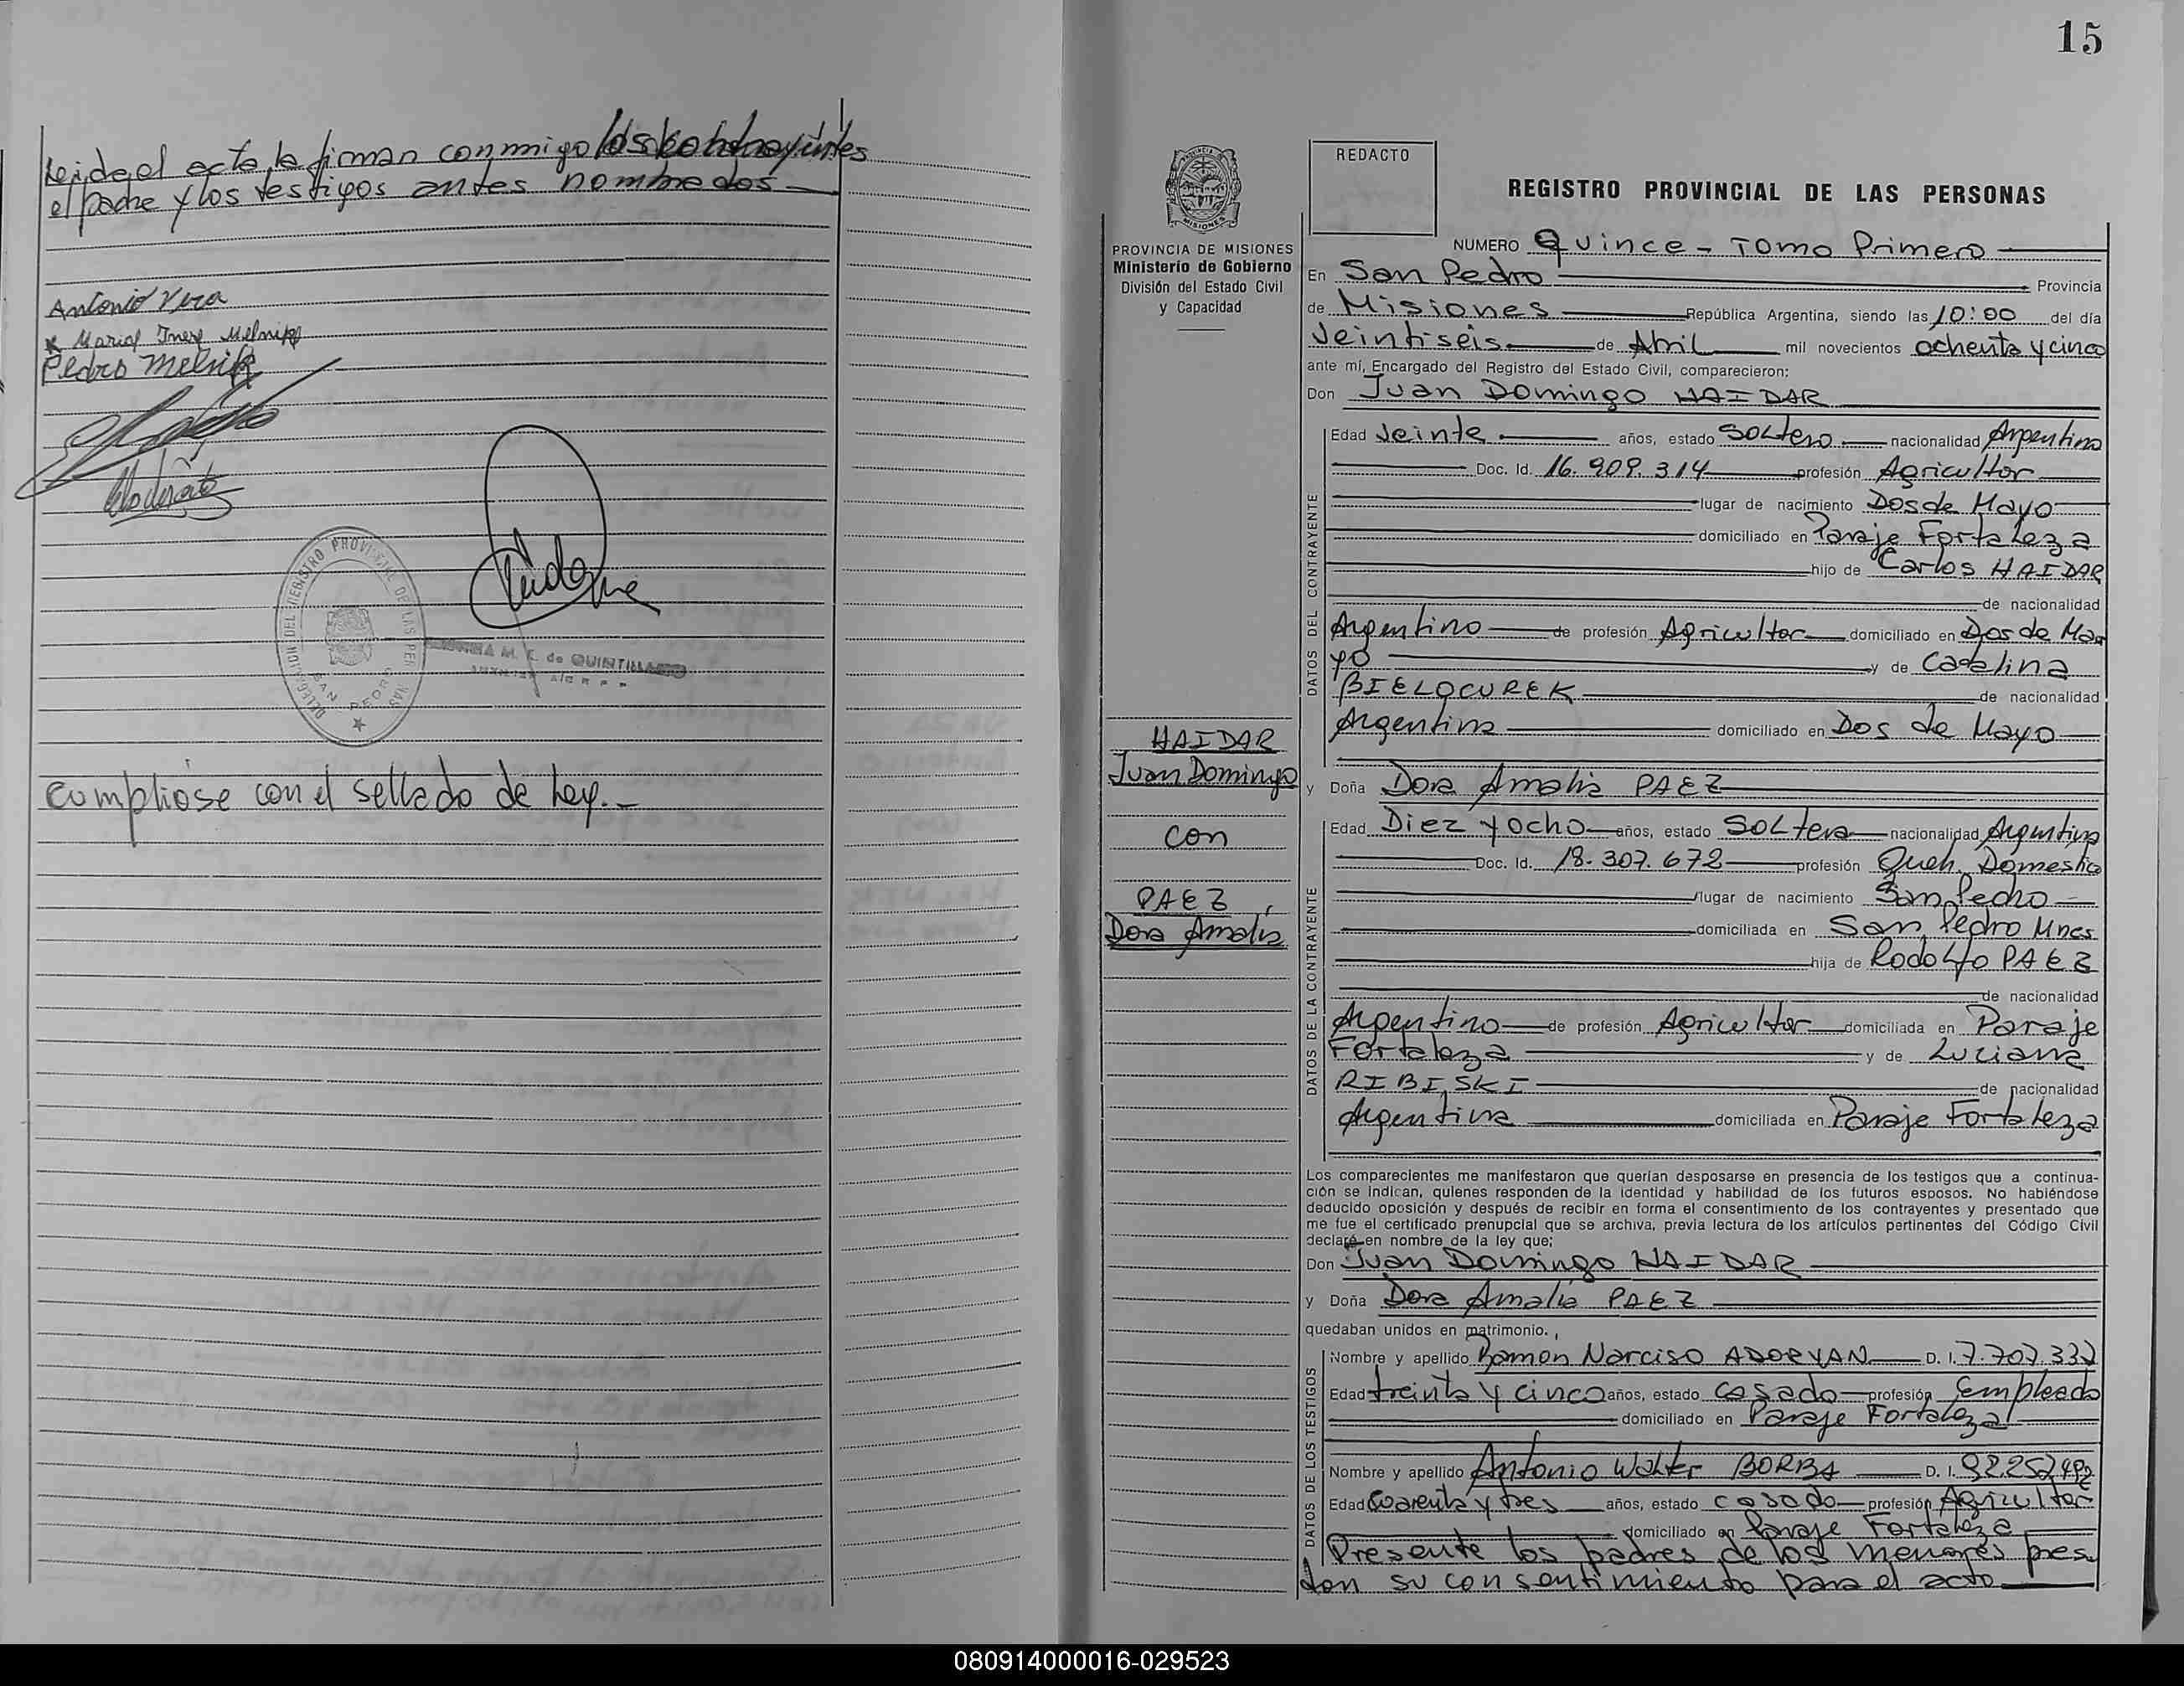 Leida el acta la firman conmigo los contrayentes
el padre y los testigos antes nombrados
Antonio Vera
Maria Ines Melnik
Pedro Melnik
DELEGACION DEL REGISTRO PROVINCIAL DE LAS PERSONAS
SAN PEDRO
M. E. de QUINTILLAN
cumpliose con el sellado de Ley.-
15
REDACTO
REGISTRO PROVINCIAL DE LAS PERSONAS
MISIONES
PROVINCIA DE MISIONES
Ministerio de Gobierno
División del Estado Civil
y Capacidad
HAIDAR
Juan Domingo
con
PAEZ,
Dora Amalia
NUMERO Quince - Tomo Primero
En San Pedro Provincia
de Misiones República Argentina, siendo las 10:00 del día
Veintiseis de Abril mil novecientos ochenta y cinco
ante mí, Encargado del Registro del Estado Civil, comparecieron:
Don Juan Domingo HAIDAR
DATOS DEL CONTRAYENTE
Edad Veinte años, estado Soltero nacionalidad Argentino
Doc. Id. 16.909.314 profesión Agricultor
lugar de nacimiento Dos de Mayo
domiciliado en Paraje Fortaleza
hijo de Carlos HAIDAR
de nacionalidad
Argentino de profesión Agricultor domiciliado en Dos de Ma
yo y de Catalina
BIELOCUREK de nacionalidad
Argentina domiciliado en Dos de Mayo
y Doña Dora Amalia PAEZ
DATOS DE LA CONTRAYENTE
Edad Diez y ocho años, estado Soltera nacionalidad Argentina
Doc. Id. 18.307.672 profesión Queh. Domestico
lugar de nacimiento San Pedro
domiciliada en San Pedro Mnes
hija de Rodolfo PAEZ
de nacionalidad
Argentino de profesión Agricultor domiciliada en Paraje
Fortaleza y de Luciana
RIBISKI de nacionalidad
Argentina domiciliada en Paraje Fortaleza
Los comparecientes me manifestaron que querían desposarse en presencia de los testigos que a continua-
ción se indican, quienes responden de la identidad y habilidad de los futuros esposos. No habiéndose
deducido oposición y después de recibir en forma el consentimiento de los contrayentes y presentado que
me fue el certificado prenupcial que se archiva, previa lectura de los artículos pertinentes del Código Civil
declaré en nombre de la ley que;
Don Juan Domingo HAIDAR
y Doña Dora Amalia PAEZ
quedaban unidos en matrimonio.
DATOS DE LOS TESTIGOS
Nombre y apellido Ramon Narciso ADORYAN D. I. 7.707.332
Edad treinta y cinco años, estado casado profesión Empleado
domiciliado en Paraje Fortaleza
Nombre y apellido Antonio Walter BORBA D. I. 92.252.492
Edad Cuarenta y tres años, estado casado profesión Agricultor
domiciliado en Paraje Fortaleza
Presente los padres de los menores pres
tan su consentimiento para el acto
080914000016-029523